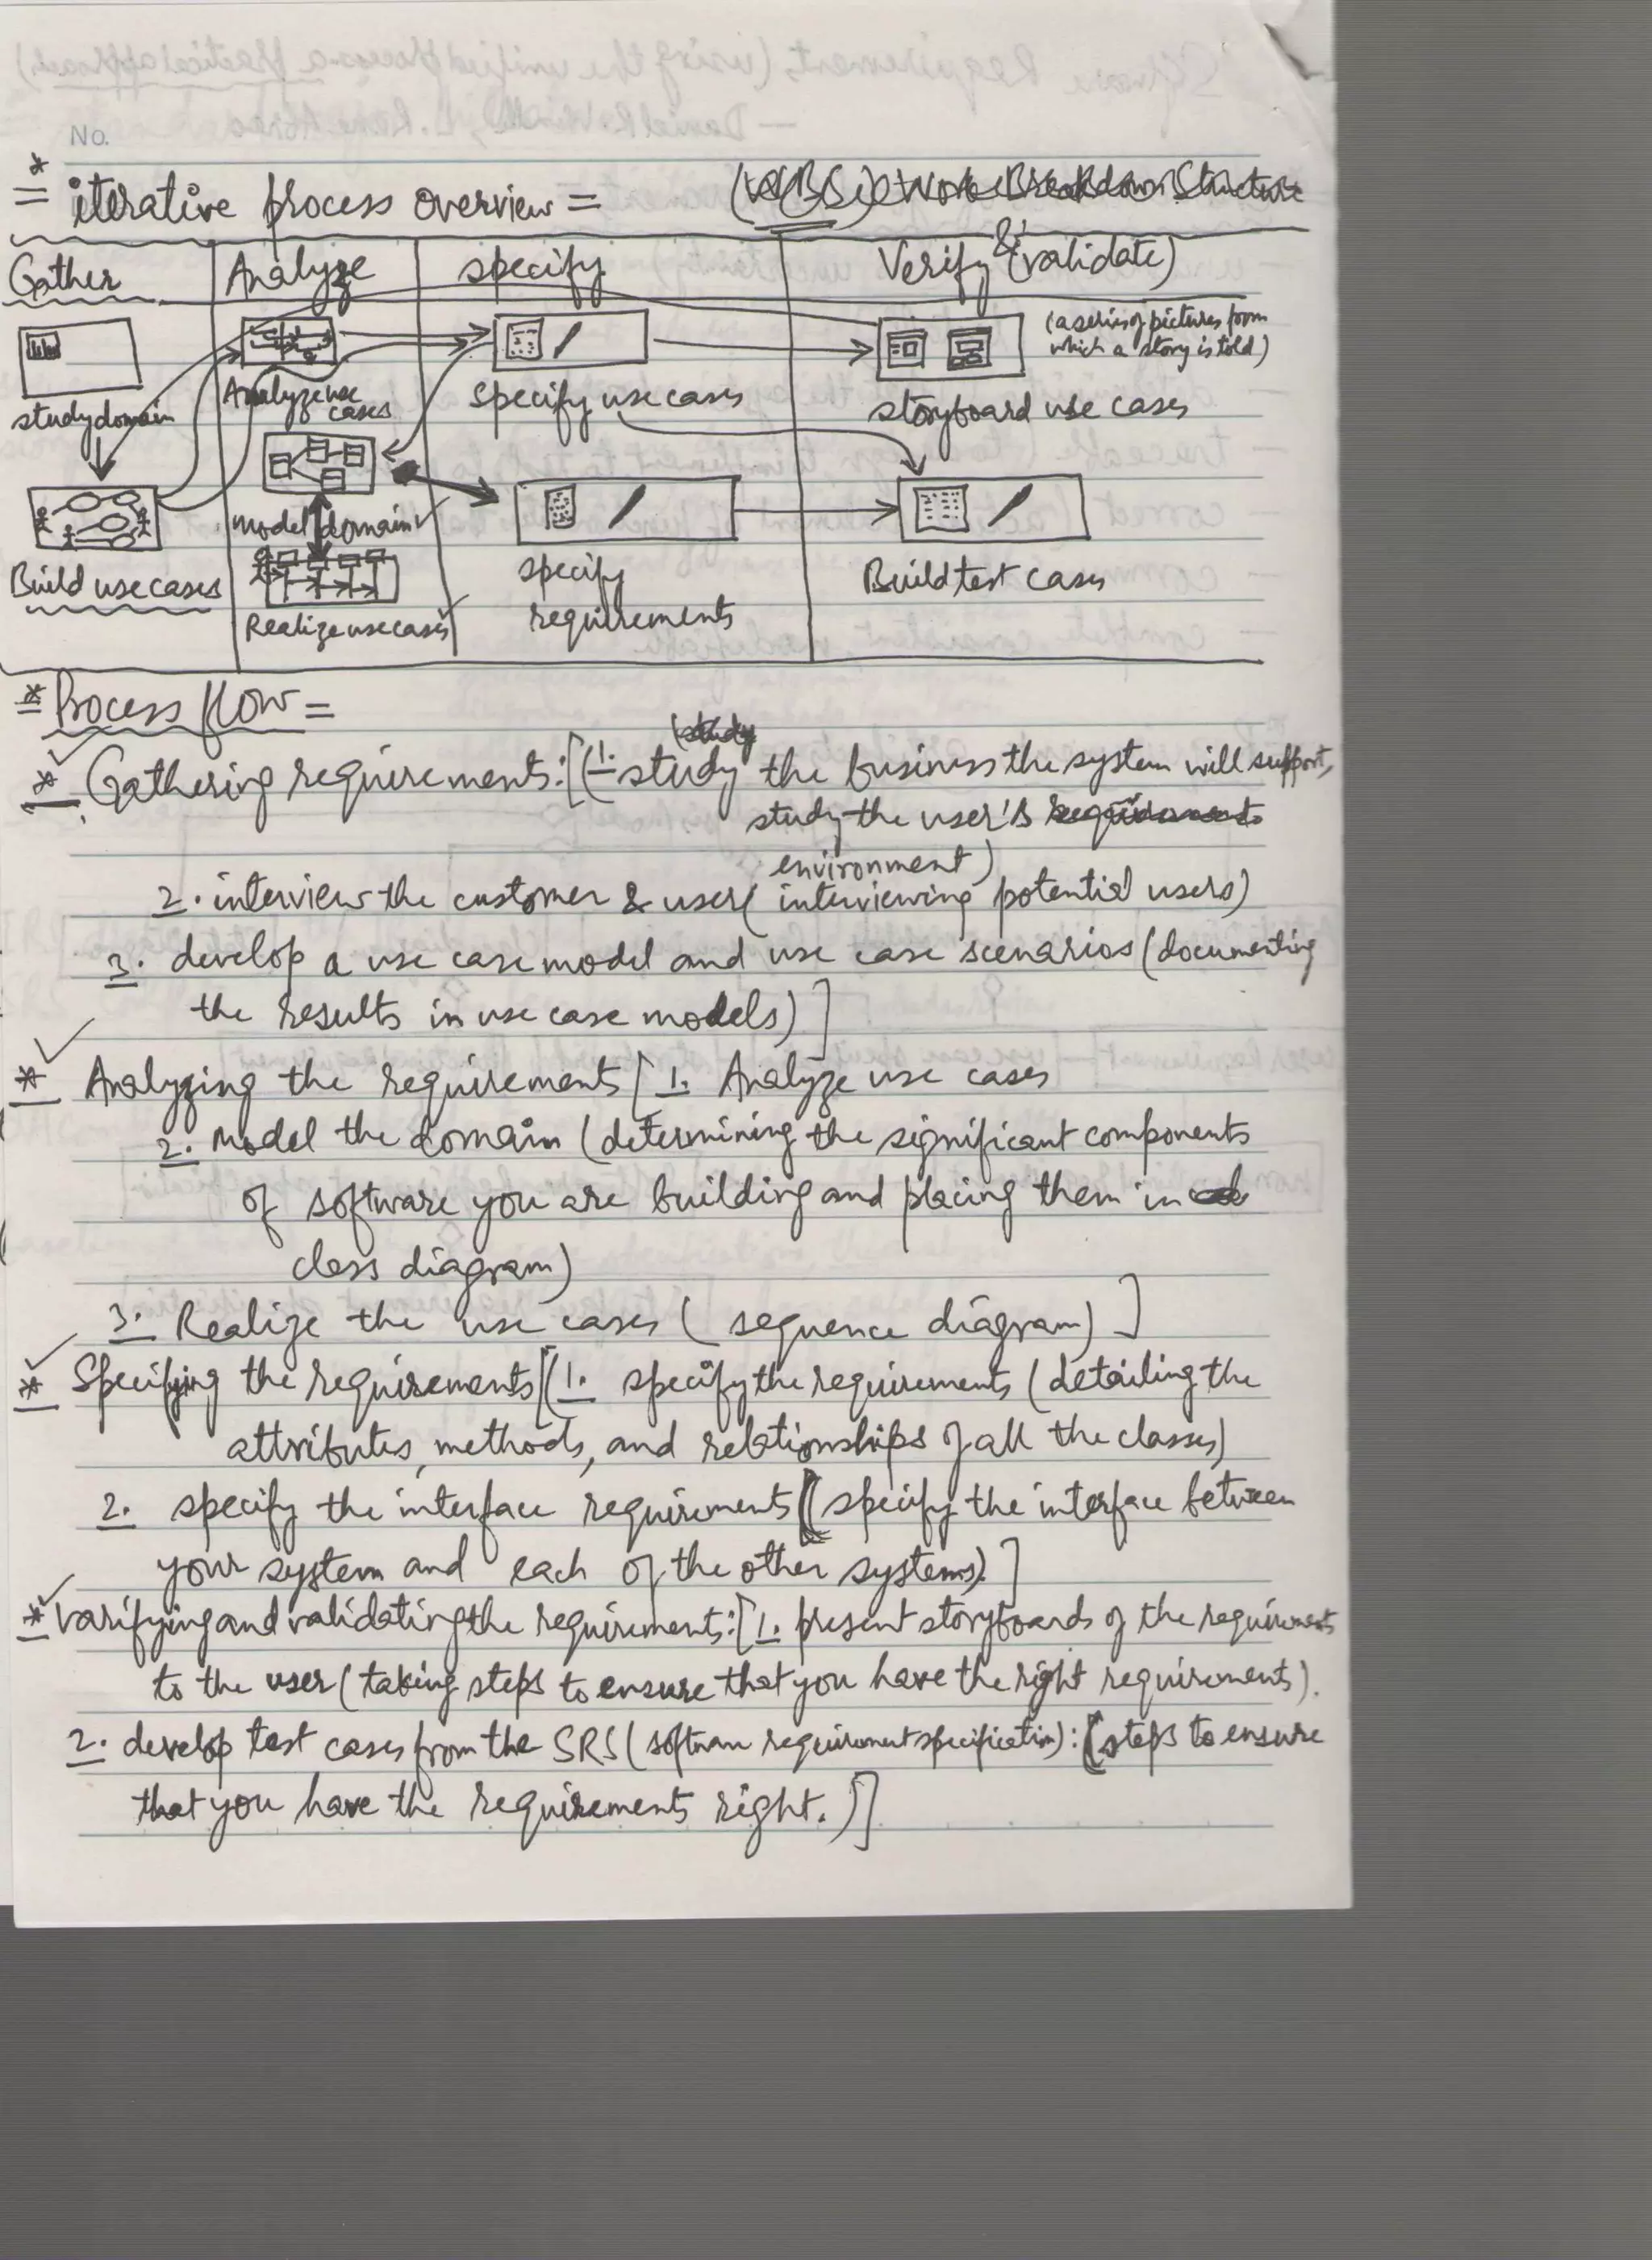 No.
* iterative process overview = (WBS) Work Breakdown Structure
Gather Analyze specify Verify & (validate)
(a series of pictures from
which a story is told)
study domain Analyze use cases specify use cases storyboard use cases
model domain
Build use cases specify requirements Build test cases
Realize use cases
* Process flow =
(study
* Gathering requirements: [(1. study the business the system will support,
study the user's requirements
environment)
2. interview the customer & user (interviewing potential users)
3. develop a use case model and use case scenarios (documenting
the results in use case models)]
* Analyzing the requirements [1. Analyze use cases
2. Model the domain (determining the significant components
of software you are building and placing them in
class diagram)
3. Realize the use cases (sequence diagram)]
* Specifying the requirements [(1. specify the requirements (detailing the
attributes, methods, and relationships of all the classes)
2. specify the interface requirements (specify the interface between
your system and each of the other systems).]
* Varifying and validating the requirements: [1. present storyboards of the requirements
to the user (taking steps to ensure that you have the right requirements).
2. develop test cases from the SRS (software requirement specification): (steps to ensure
that you have the requirements right.)]